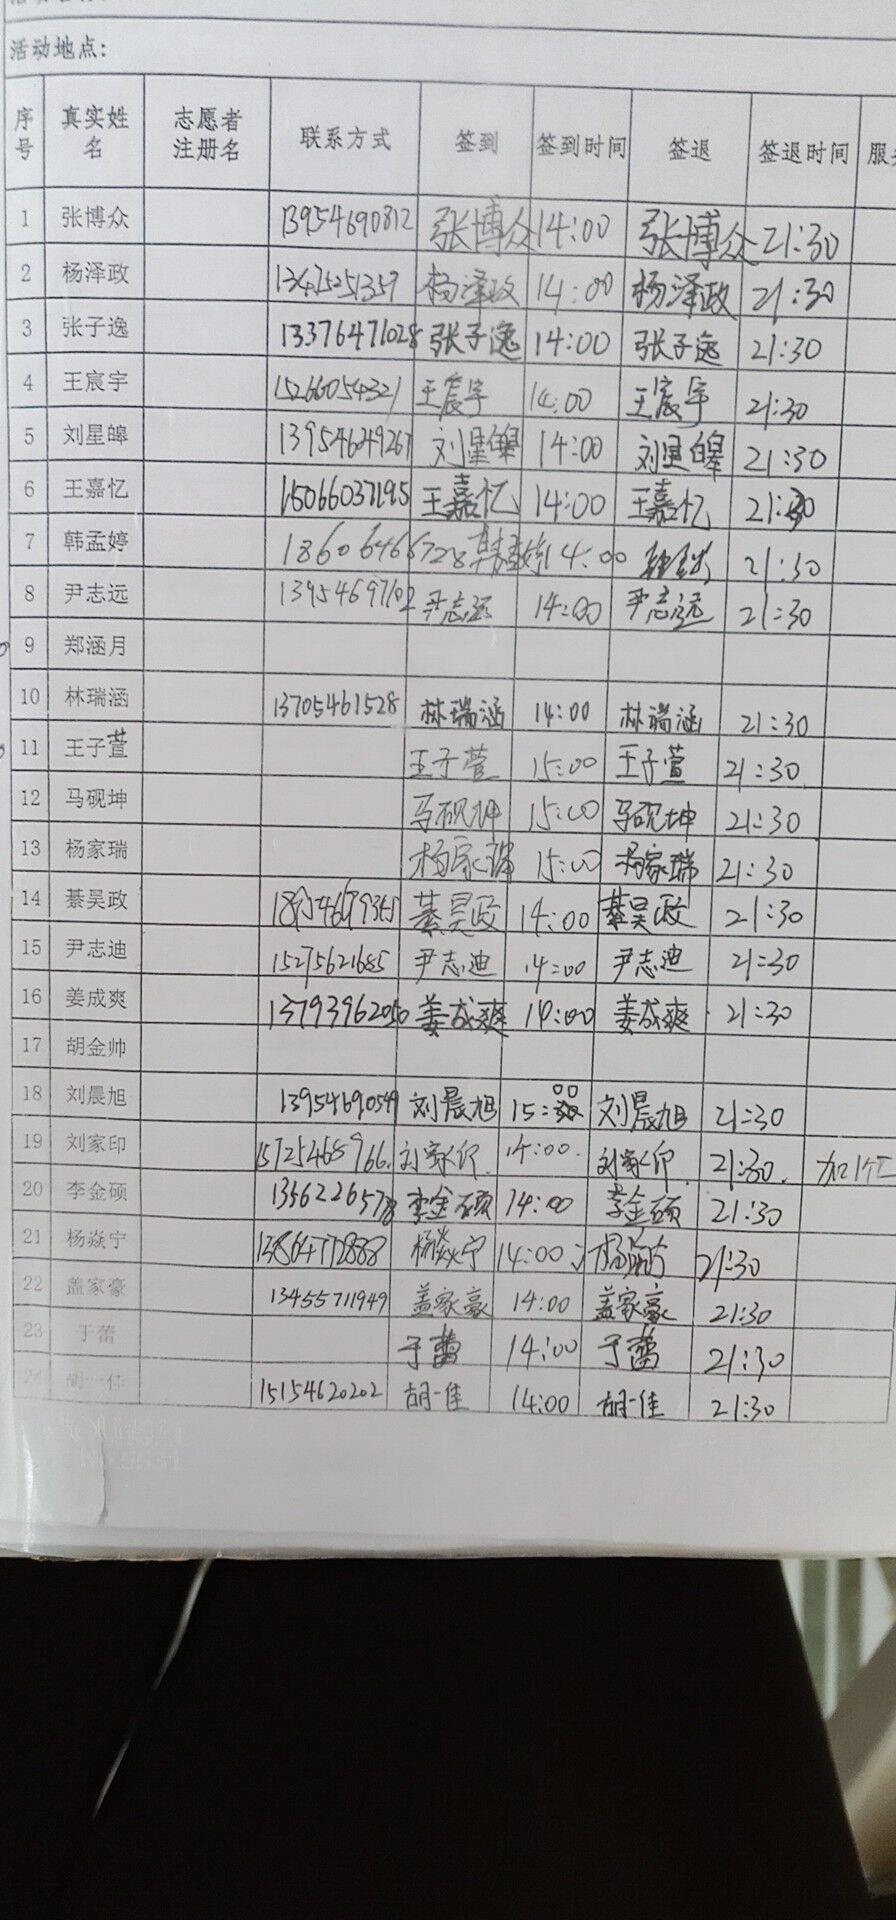 活动地点:
序号 真实姓名 志愿者注册名 联系方式 签到 签到时间 签退 签退时间
1 张博众 13954690812 张博众 14:00 张博众 21:30
2 杨泽政 13475251359 杨泽政 14:00 杨泽政 21:30
3 张子逸 13376471028 张子逸 14:00 张子逸 21:30
4 王宸宇 15266054321 王宸宇 14:00 王宸宇 21:30
5 刘星皞 13954649267 刘星皞 14:00 刘星皞 21:30
6 王嘉忆 15066037195 王嘉忆 14:00 王嘉忆 21:30
7 韩孟婷 18606466728 14:00 21:30
8 尹志远 13954697102 尹志远 14:00 尹志远 21:30
9 郑涵月
10 林瑞涵 13705461528 林瑞涵 14:00 林瑞涵 21:30
11 王子萱 王子萱 15:00 王子萱 21:30
12 马砚坤 马砚坤 15:00 马砚坤 21:30
13 杨家瑞 杨家瑞 15:00 杨家瑞 21:30
14 綦昊政 綦昊政 14:00 綦昊政 21:30
15 尹志迪 15275621685 尹志迪 14:00 尹志迪 21:30
16 姜成爽 13793962050 姜成爽 14:00 姜成爽 21:30
17 胡金帅
18 刘晨旭 13954690549 刘晨旭 15:00 刘晨旭 21:30
19 刘家印 15725468966 刘家印 14:00 刘家印 21:30
20 李金硕 李金硕 14:00 李金硕 21:30
21 杨焱宁 杨焱宁 14:00 21:30
22 盖家豪 13455711949 盖家豪 14:00 盖家豪 21:30
23 于蕾 于蕾 14:00 于蕾 21:30
24 胡一佳 15154620202 胡一佳 14:00 胡一佳 21:30